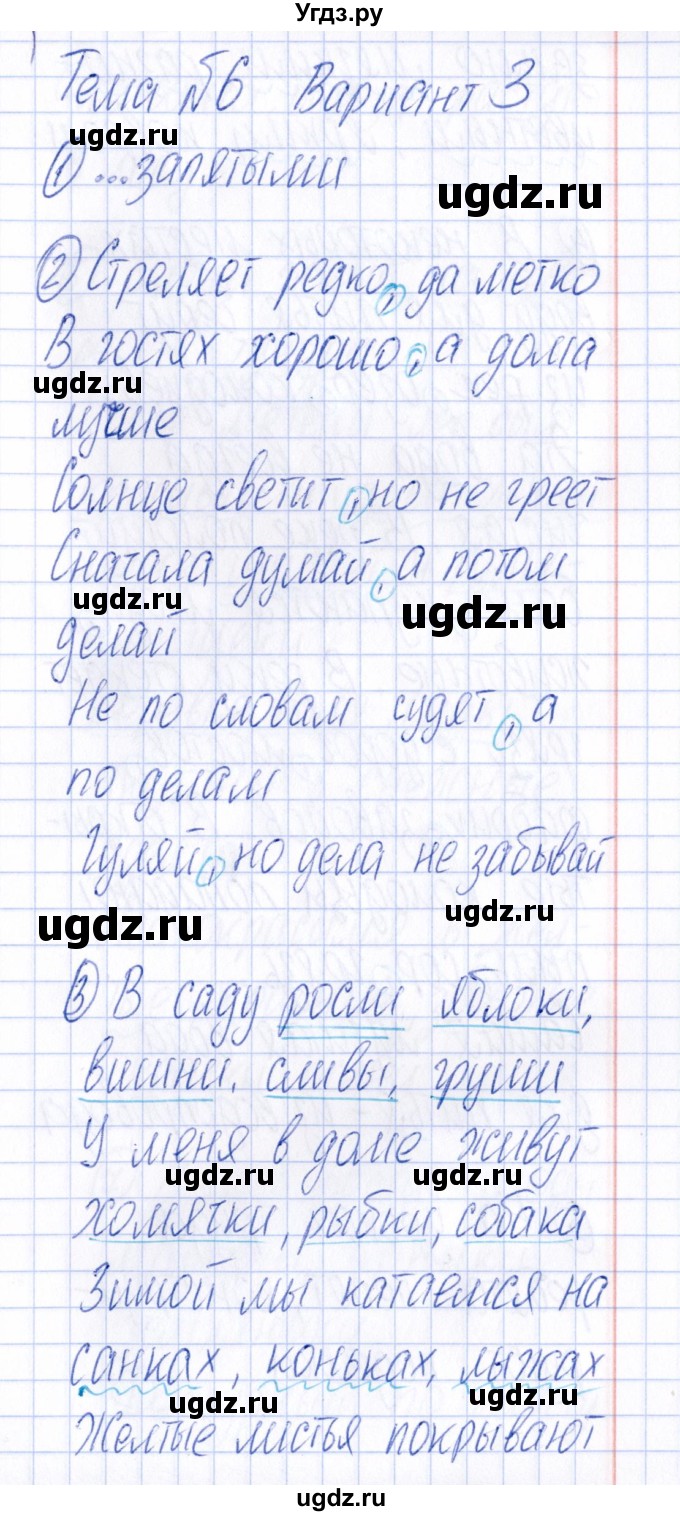 Угдз.ру
Тема №6 Вариант 3
ugdz.ru
① ...запятыми
ugdz.ru
② Стреляет редко, да метко
В гостях хорошо, а дома
ugdz.ru
лучше
Солнце светит, но не греет
Сначала думай, а потом
ugdz.ru ugdz.ru
делай
Не по словам судят, а
по делам
Гуляй, но дела не забывай
ugdz.ru ugdz.ru
③ В саду росли яблоки,
вишни, сливы, груши
У меня в доме живут
ugdz.ru ugdz.ru
хомячки, рыбки, собака
Зимой мы катаемся на
санках, коньках, лыжах
ugdz.ru ugdz.ru
Желтые листья покрывают
ugdz.ru